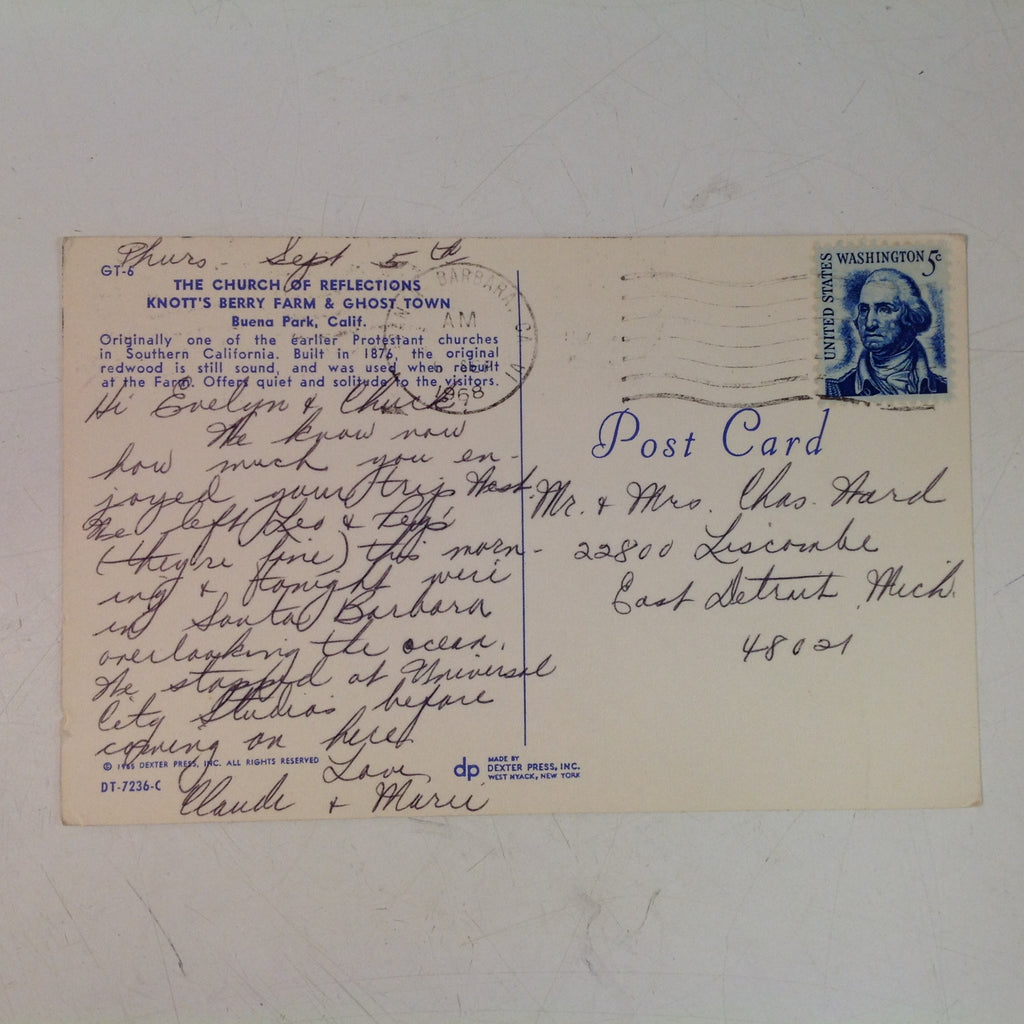 Thurs. Sept 5th
GT-6
THE CHURCH OF REFLECTIONS
KNOTT'S BERRY FARM & GHOST TOWN
Buena Park, Calif.
Originally one of the earlier Protestant churches
in Southern California. Built in 1876, the original
redwood is still sound, and was used when rebuilt
at the Farm. Offers quiet and solitude to the visitors.
Hi Evelyn & Chuck,
We know now
how much you en-
joyed your trip West.
We left Leo & Peg's
(they're fine) this morn-
ing & tonight we're
in Santa Barbara
overlooking the ocean.
We stopped at Universal
City Studios before
coming on here.
Love
Claude & Marie
© 1965 DEXTER PRESS, INC. ALL RIGHTS RESERVED
DT-7236-C
dp MADE BY
DEXTER PRESS, INC.
WEST NYACK, NEW YORK
BARBARA, CA
AM
1968
UNITED STATES
WASHINGTON 5c
Post Card
Mr. & Mrs. Chas. Hard
22800 Liscombe
East Detroit, Mich.
48021